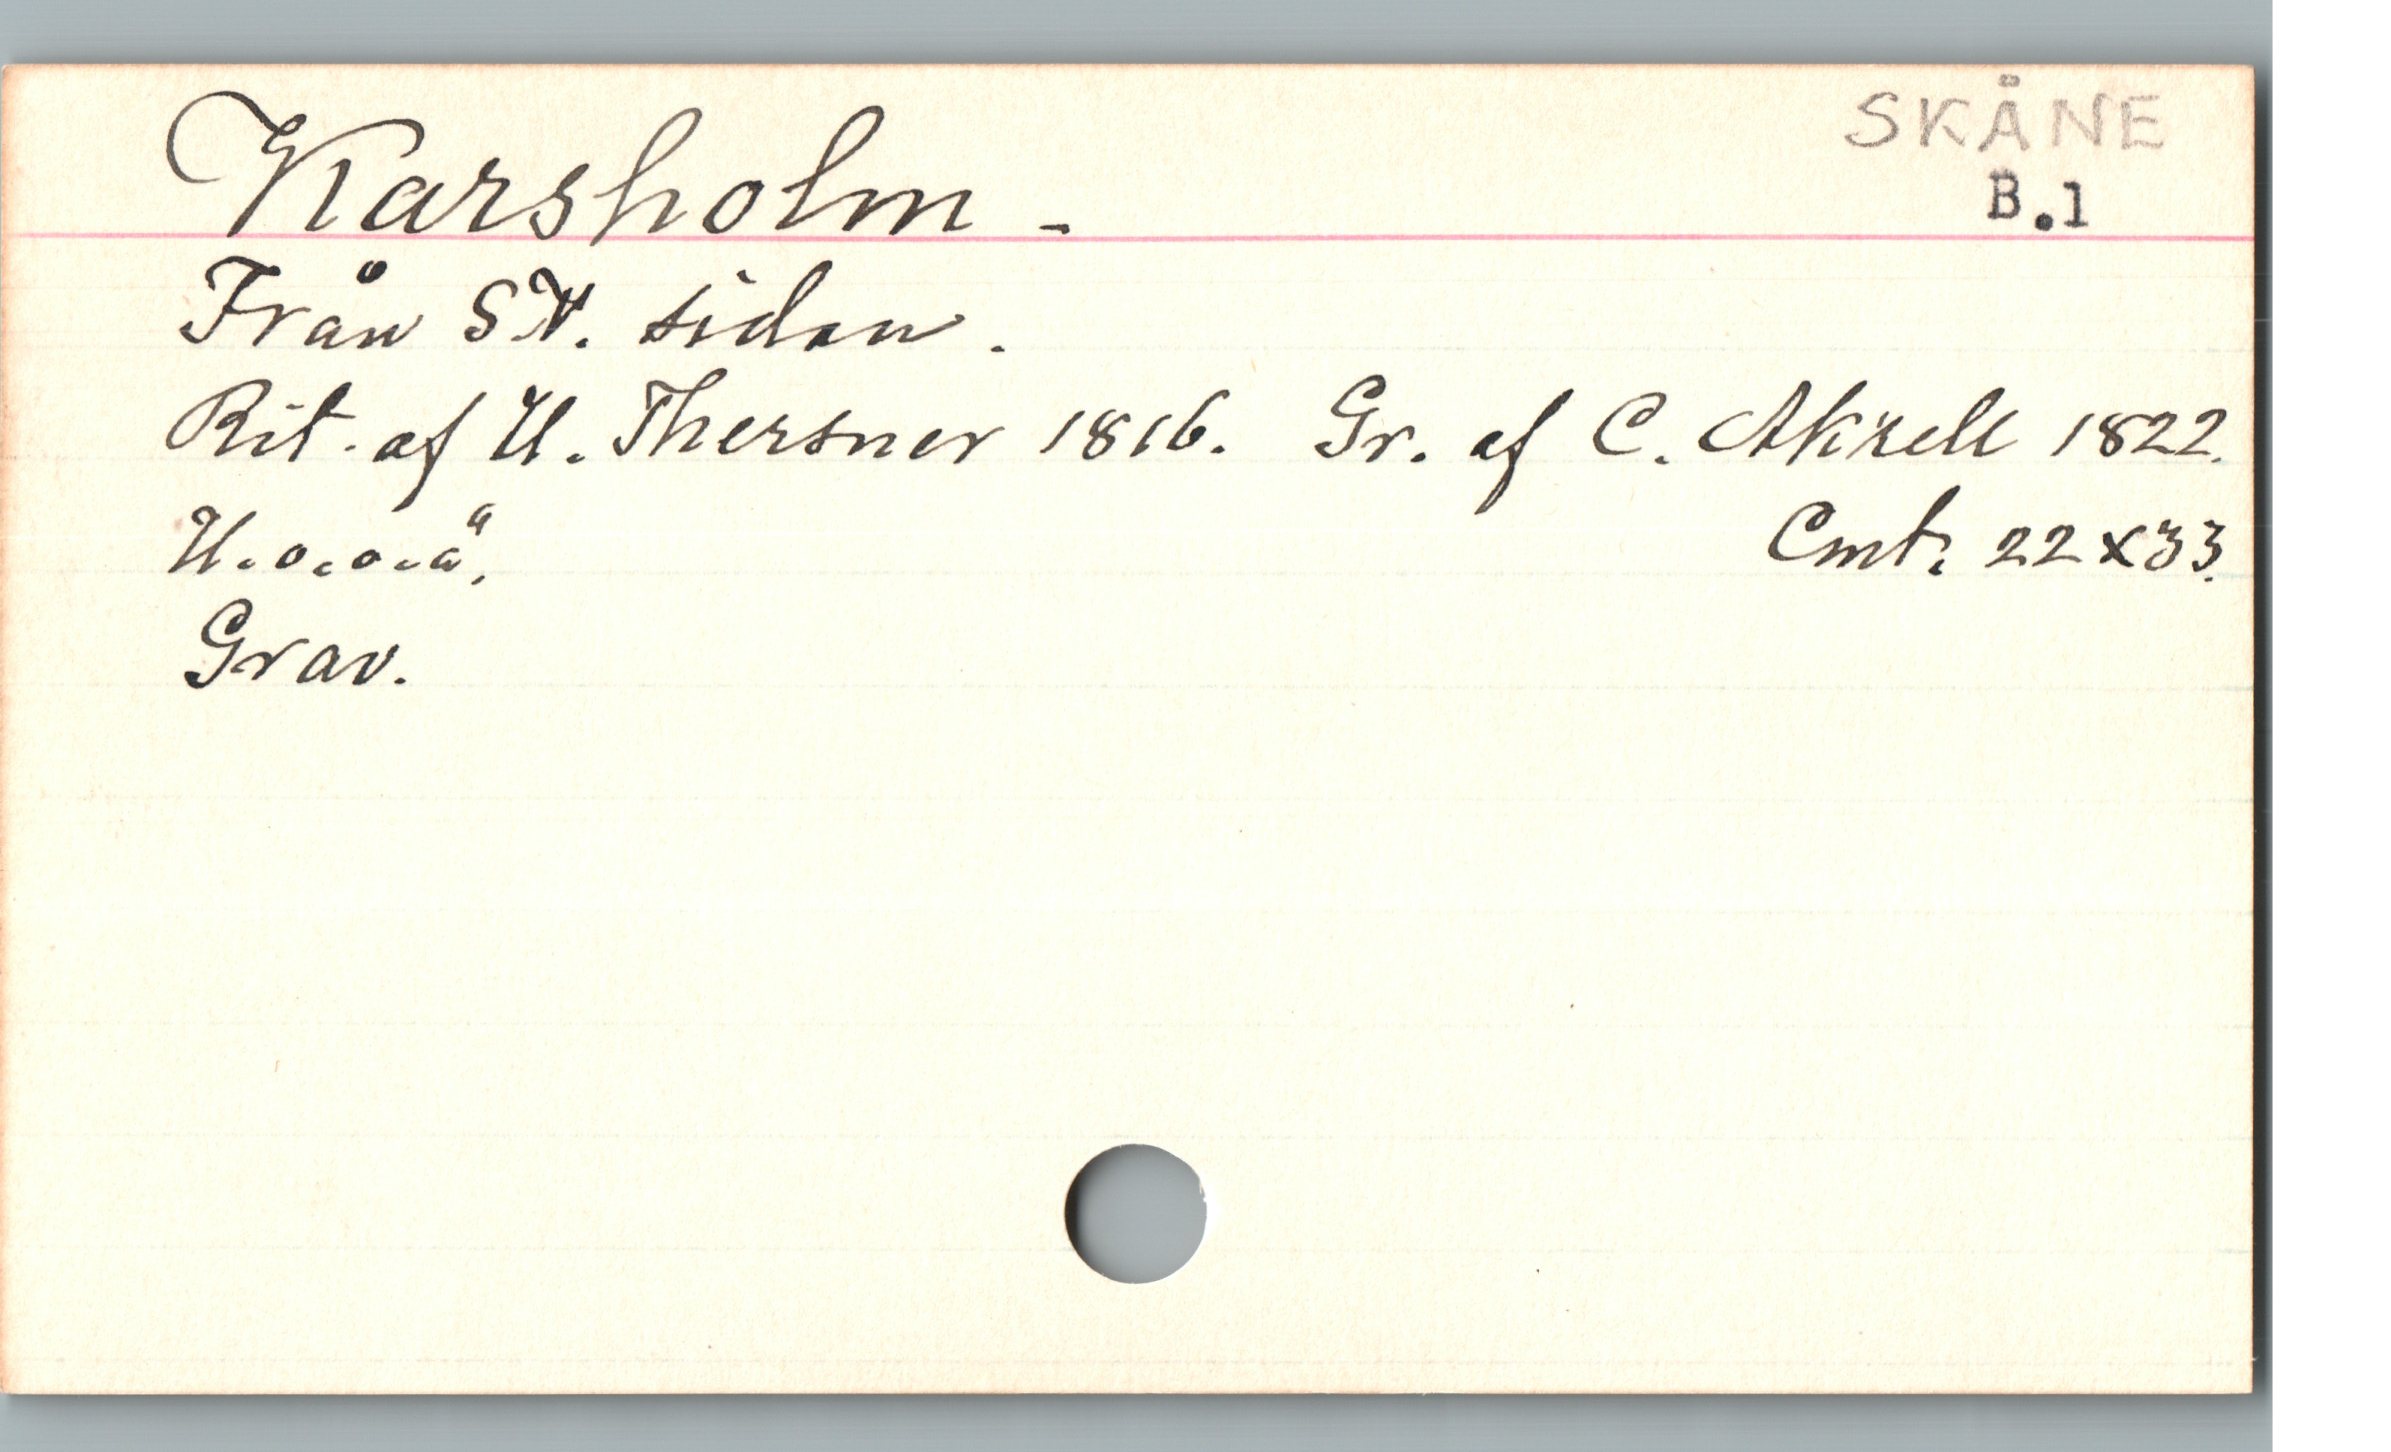 SKÅNE
B.1
Karsholm -
Från SV. sidan.
Rit. af U. Thersner 1816. Gr. af C. Akrell 1822.
U.o.o.ä. Cmt. 22x33.
Grav.